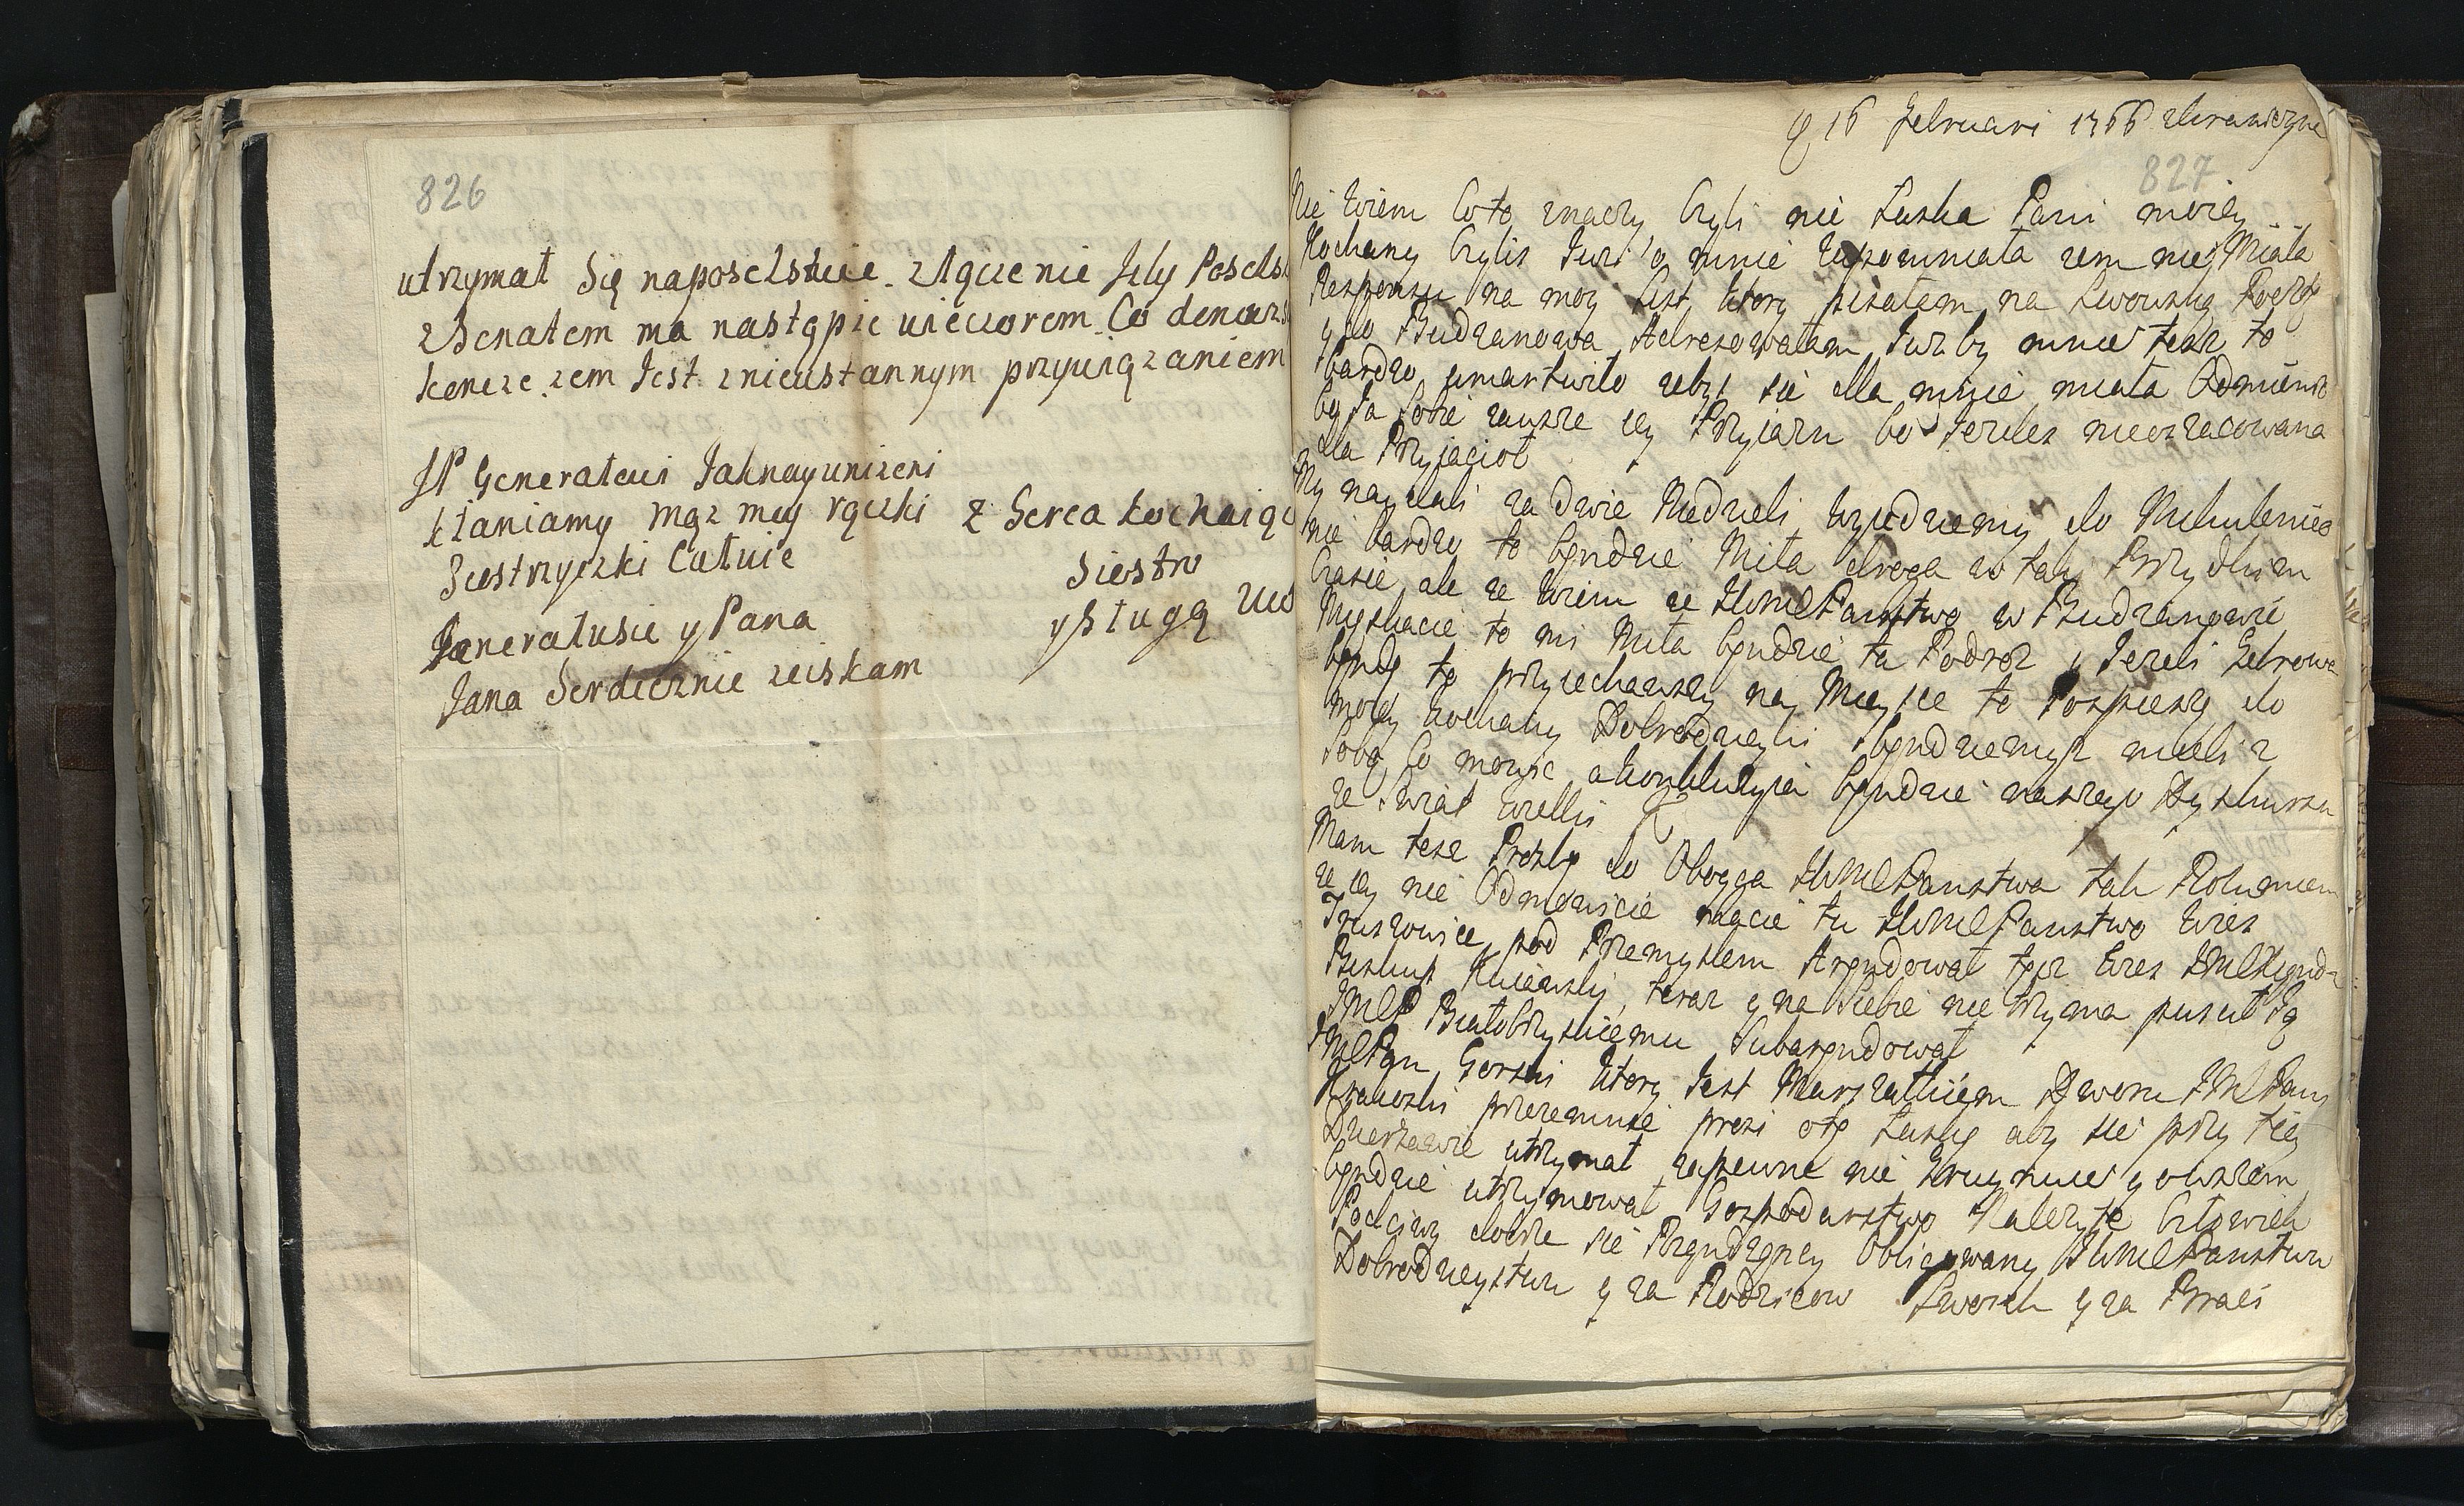 826
utrzymał Się naposelstwie. złączenie Izby Poselsk
z Senatem ma nastąpic wieczorem. Co
koncze. zem Jest z nieustannym przywiązaniem
JP Generałowi Jaknayunizeni
kłaniamy mąz móy rączki
Siestrzyczki Całuie
Jenerałusie y Pana
Jana Serdecznie sciskam
z Serca kochaiąc
Siostro
y Sługą
16 Februari 1766
827
Nie Wiem Co to znaczy Czyli nie Łaska Pani moiey
Kochany Czylis Jusz o mnie Zapomniała zem nie Miała
Responsu na moy List Ktory pisałam na Lwowską Poczt
y do Budzanowa Adresowałam Jusz by mnie tesz to
bardzo umartwiło zebys sie dla mnie miała Odmienic
bo Ja Sobie zawsze iey Przyiazn bo Jestes nieoszacowana
dla Przyjacioł
My naydali za dwie Niedzieli wyiedziemy do Mikulenies
nie bardzo to bęndzie Miła droga w tak Przydłuzm
Czasie ale ze Wiem ze JWWMPanstwo w Budzanowie
Myszkacie to mi Miła bęndzie ta Podroz y Jezeli Zdrowa
będę to przyiechawszy na Mieysce to Pospieszę do
moiey kochany Dobrodzieyki bęndziemysz mieli z
Sobą Co mowic a konkluzyia bęndzie naszego Dyskursu
ze Swiat Wielki
Mam tesz Prozbę do Oboyga JWWMPanstwa tak Rozumiem
ze iey nie Odmowicie macie tu JWWMPanstwo Wies
pod Przemyslem Arędował tęsz Wies JMCXiąndz
Biskup Kiiowski, teraz y na Siebie nie trzyma puscił Ją
JMCP Białobrzyskiemu Subarędował
JMCPan Gorski Ktory Jest Marszałkiem Dworu JMCPani
Krakoski przezemnie prosi otę Łaskę aby sie przy tey
Dzierzawie utrzymał zapewne nie Zruynuie y owszem
bęndzie utrzymował Gospodarstwo Nalezyte Człowiek
Poczciwy dobrze sie Rządzący Obligowany JWWMPanstwu
Dobrodzieystwu y za Rodzicow Swoich y za Braci